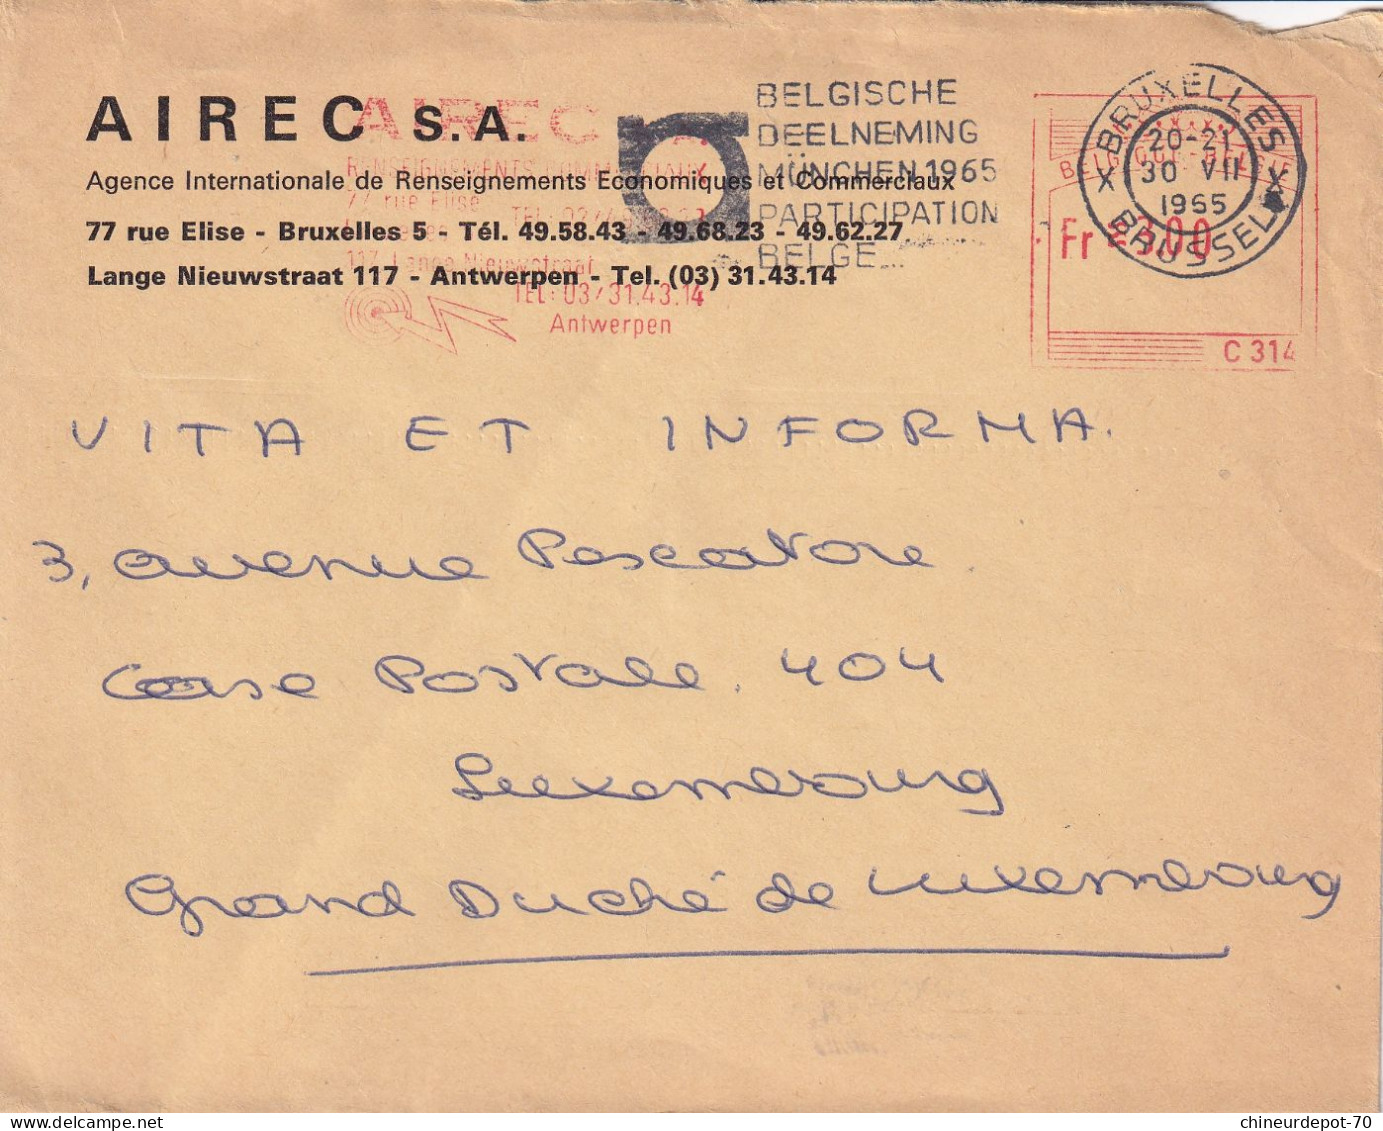 AIREC S.A.
Agence Internationale de Renseignements Economiques et Commerciaux
77 rue Elise - Bruxelles 5 - Tél. 49.58.43 - 49.68.23 - 49.62.27
Lange Nieuwstraat 117 - Antwerpen - Tel. (03) 31.43.14
AIREC
RENSEIGNEMENTS COMMERCIAUX
77 rue Elise
117 Lange Nieuwstraat
TEL: 03/31.43.14
Antwerpen
BELGISCHE
DEELNEMING
MÜNCHEN 1965
PARTICIPATION
BELGE
BRUXELLES X BRUSSEL X
20-21
30 VII
1965
BELGIQUE-BELGIE
Fr 3.00
C 314
VITA ET INFORMA.
3, avenue Pescatore
Case Postale. 404
Luxembourg
Grand Duché de Luxembourg
chineurdepot-70